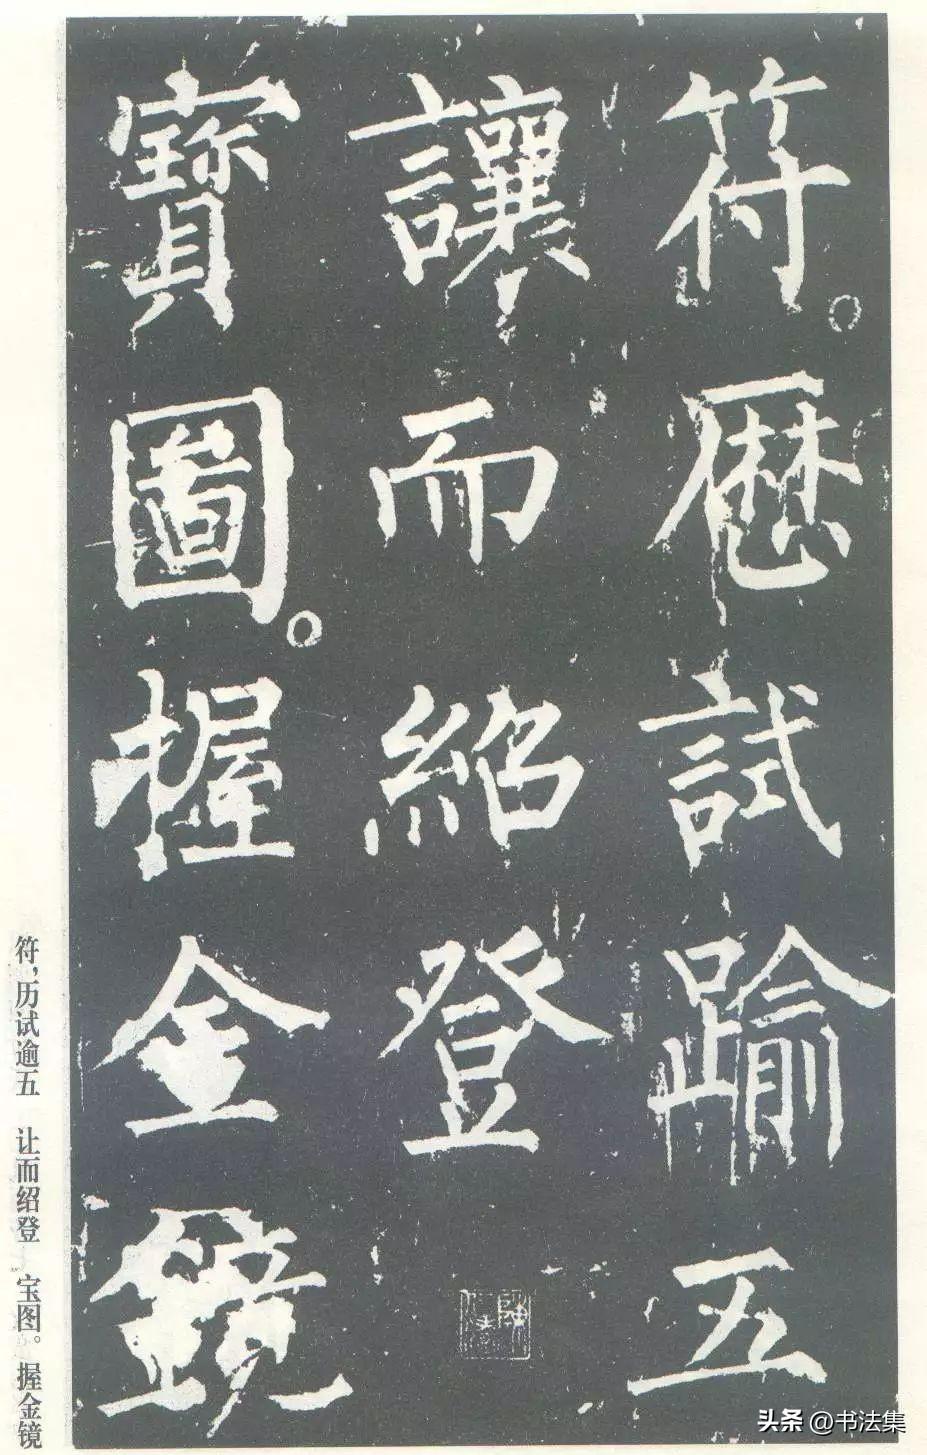 符。歷試踰五
讓而紹登
寶圖。握金鏡
符，历试逾五　让而绍登　宝图。握金镜
头条 @书法集